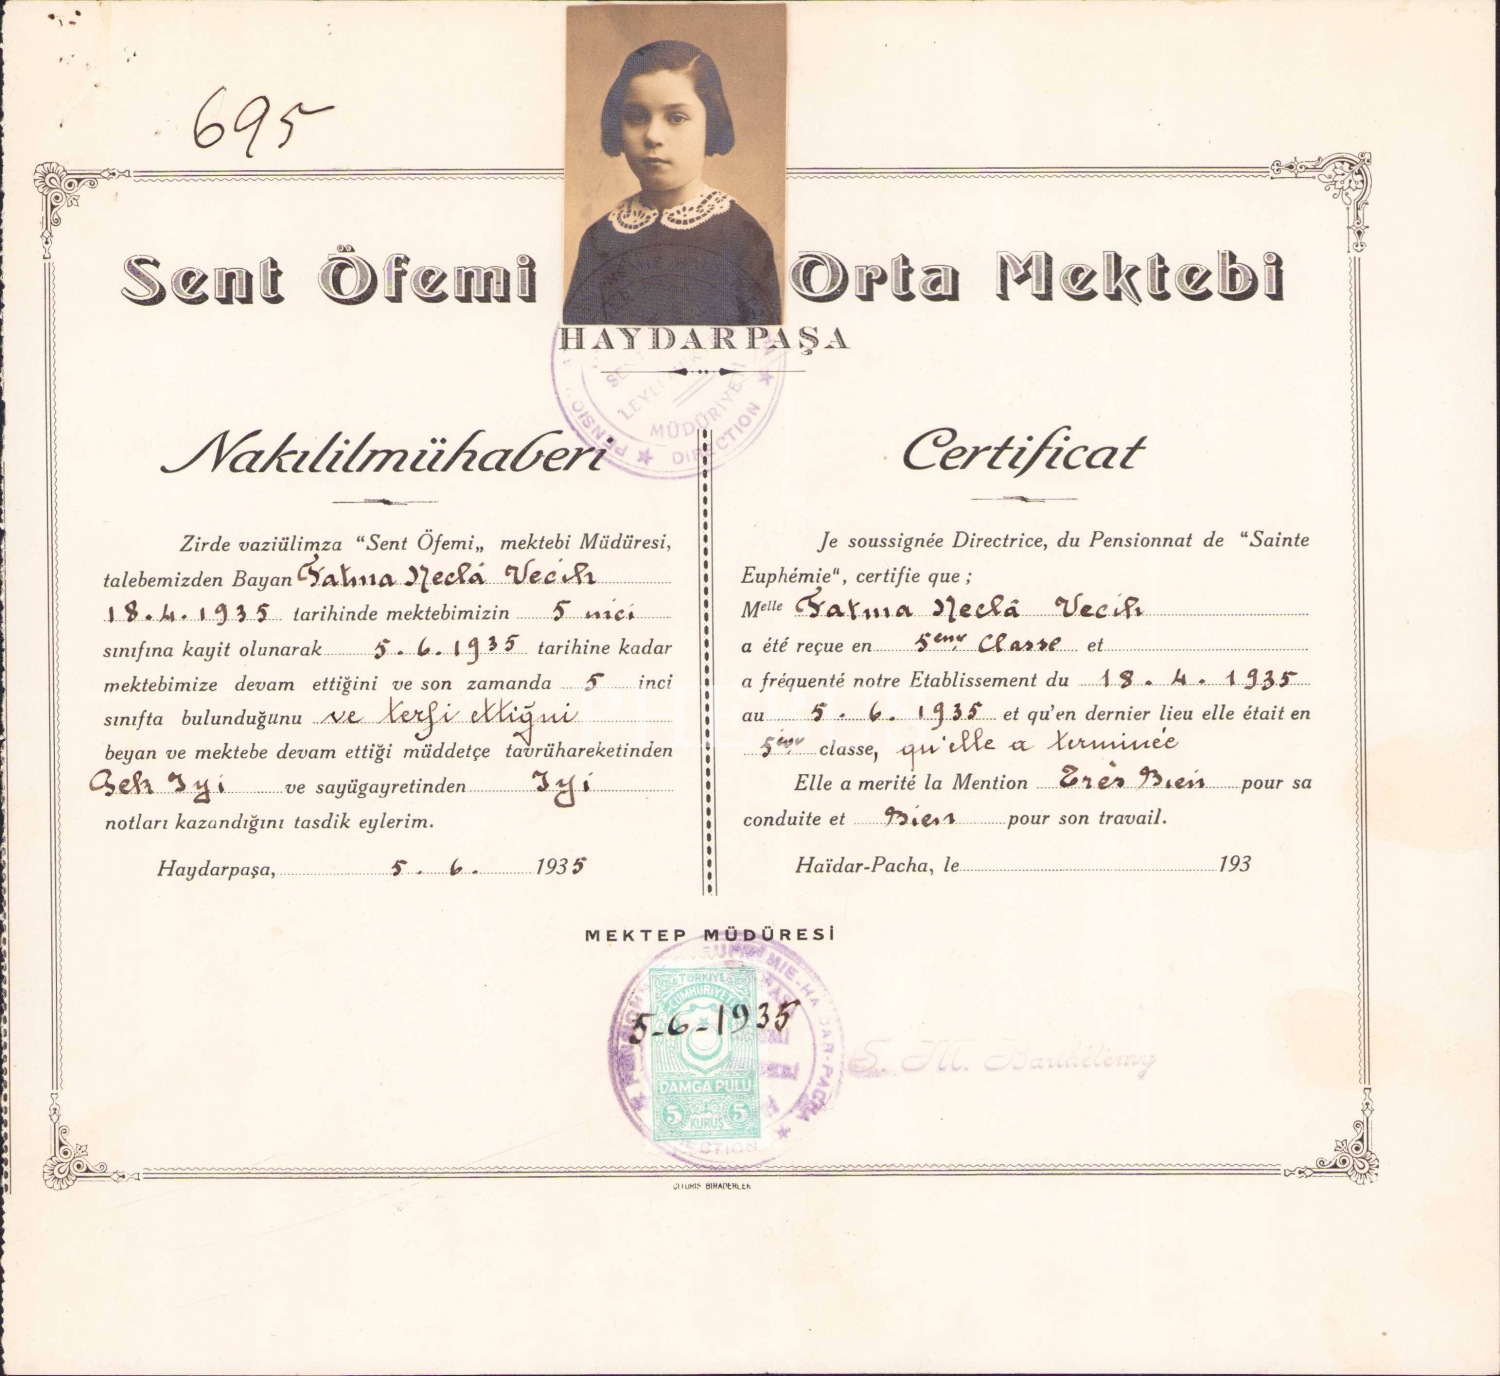 695
Sent Öfemi Orta Mektebi
HAYDARPAŞA
SENT
LEYLİ
MÜDÜRİYETİ
DIRECTION
Nakılilmühaberi
Zirde vaziülimza “Sent Öfemi„ mektebi Müdüresi,
talebemizden Bayan Fatma Neclâ Vecih
18.4.1935 tarihinde mektebimizin 5 nici
sınıfına kayit olunarak 5.6.1935 tarihine kadar
mektebimize devam ettiğini ve son zamanda 5 inci
sınıfta bulunduğunu ve terfi ettiğini
beyan ve mektebe devam ettiği müddetçe tavrühareketinden
Pek Iyi ve sayügayretinden Iyi
notları kazandığını tasdik eylerim.
Haydarpaşa, 5.6. 1935
Certificat
Je soussignée Directrice, du Pensionnat de “Sainte
Euphémie“, certifie que ;
Melle Fatma Neclâ Vecih
a été reçue en 5ème Classe et
a fréquenté notre Etablissement du 18.4.1935
au 5.6.1935 et qu'en dernier lieu elle était en
5ème classe, qu'elle a terminée
Elle a merité la Mention Très Bien pour sa
conduite et Bien pour son travail.
Haïdar-Pacha, le 193
MEKTEP MÜDÜRESİ
TÜRKİYE
CUMHURİYETİ
5-6-1935
DAMGA PULU
5 5
KURUŞ
S. M. Barthélemy
BİRADERLER